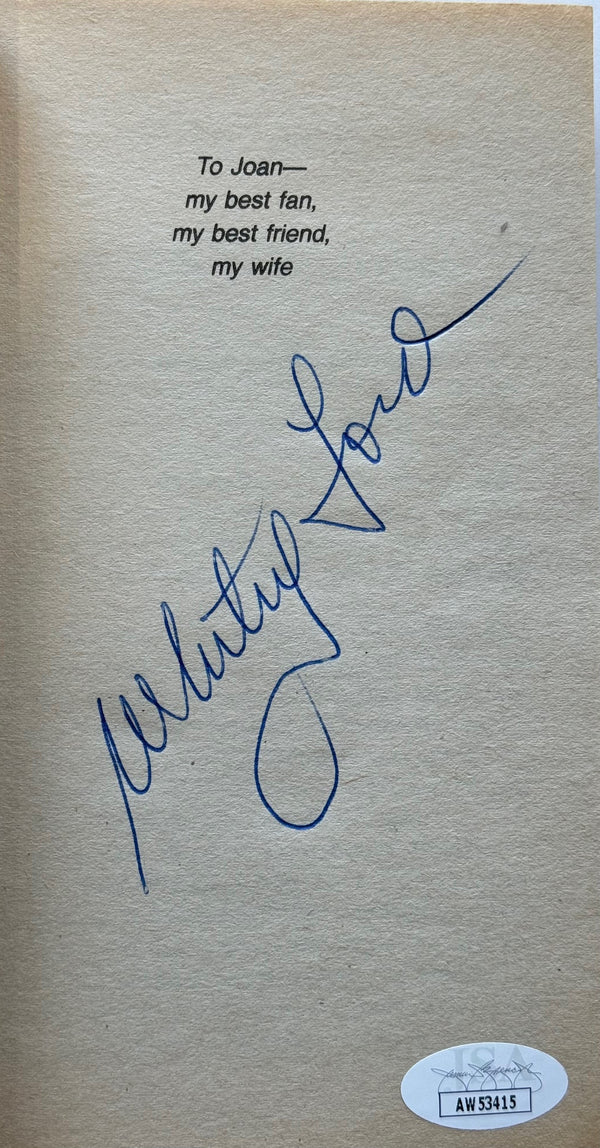 To Joan—
my best fan,
my best friend,
my wife
Whitey Ford
JSA
AW53415